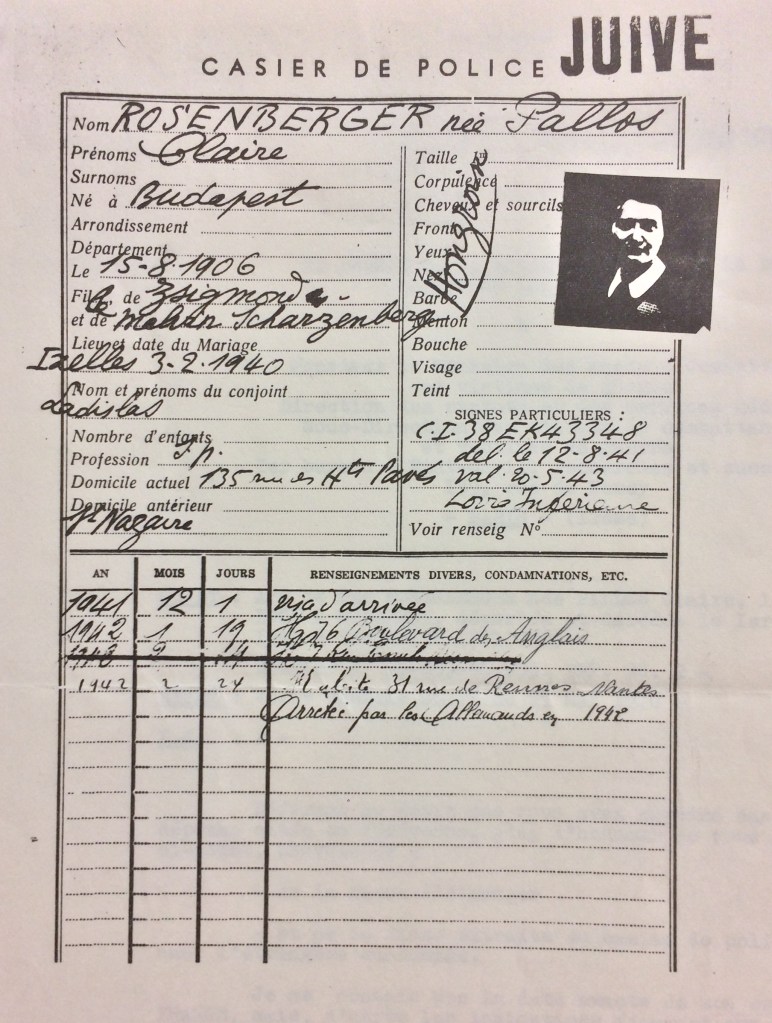 CASIER DE POLICE JUIVE
Nom ROSENBERGER née Pallos
Prénoms Claire
Surnoms
Né à Budapest
Arrondissement
Département
Le 15-8-1906
Fils de Zsigmond
et de Scharzenberg
Lieu et date du Mariage
Ixelles 3-2-1940
Nom et prénoms du conjoint
Ladislas
Nombre d'enfants
Profession S.p.
Domicile actuel 135 rue des Hts Pavés
Domicile antérieur
St Nazaire
Taille 1m
Corpulence
Cheveux et sourcils
Front
Yeux
Nez
Barbe
Menton
Bouche
Visage
Teint
Hongroise
SIGNES PARTICULIERS :
C.I. 38 EK43348
del. le 12-8-41
val. 20-5-43
Loire Inférieure
Voir renseig N°
AN MOIS JOURS RENSEIGNEMENTS DIVERS, CONDAMNATIONS, ETC.
1941 12 1 d'arrivée
1942 1 19 76 Boulevard des Anglais
1942 2 24 habite 31 rue de Rennes Nantes
Arrêtée par les Allemands en 1942